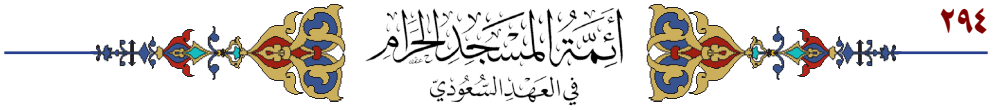 ٢٩٤
أَئِمَّةُ المَسْجِدِ الحَرَامِ
في العَهْدِ السُّعُوديّ